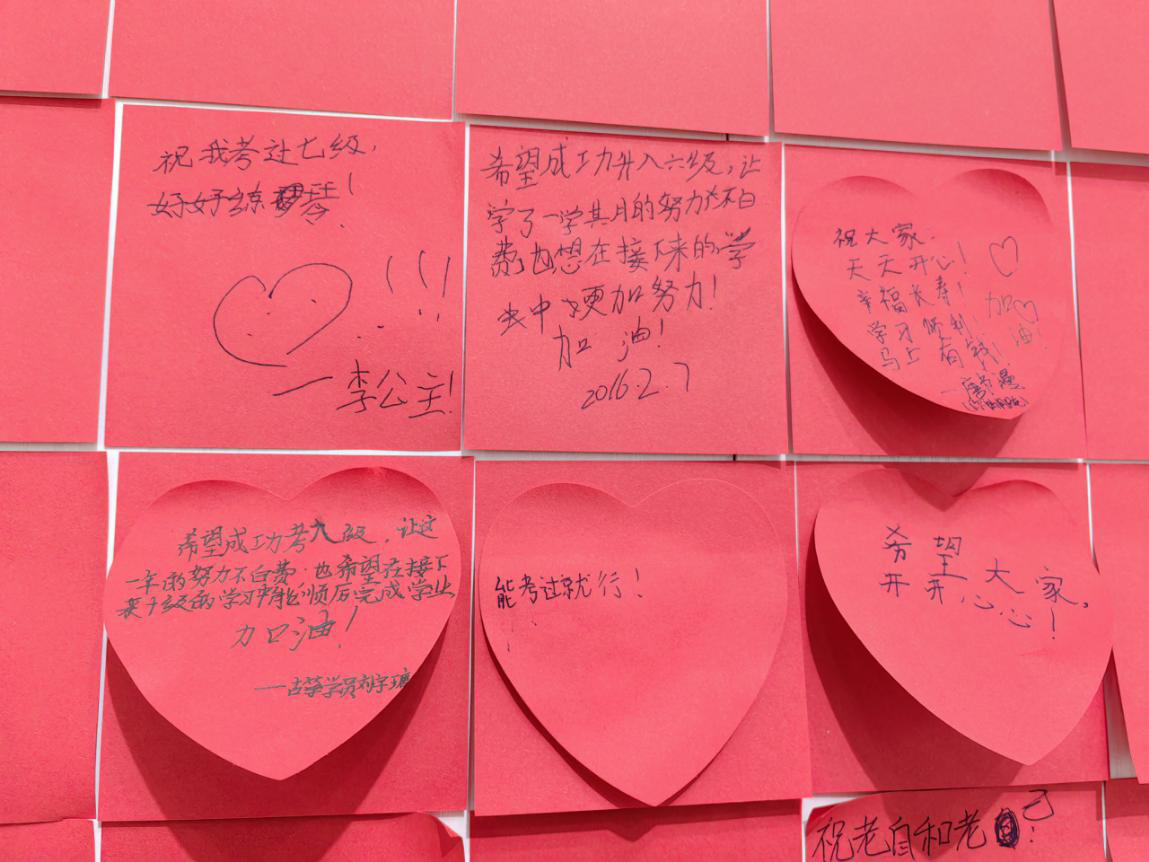 祝我考过七级，
好好练琴！
！！！
一李公主！
希望成功升入六级，让
学了一学其月的努力不白
费，也想在接下来的学
中更加努力！
加油！
2016.2.7
祝大家.
天天开心！
幸福长寿！
学习顺利！
马上有钱！
加油！
希望成功考九级，让这
一年的努力不白费.也希望在接下
来十级的学习中能顺历完成学业
加油！
——古筝学员刘宇
能考过就行！
希望大家,
开开心心！
祝老自和老己！